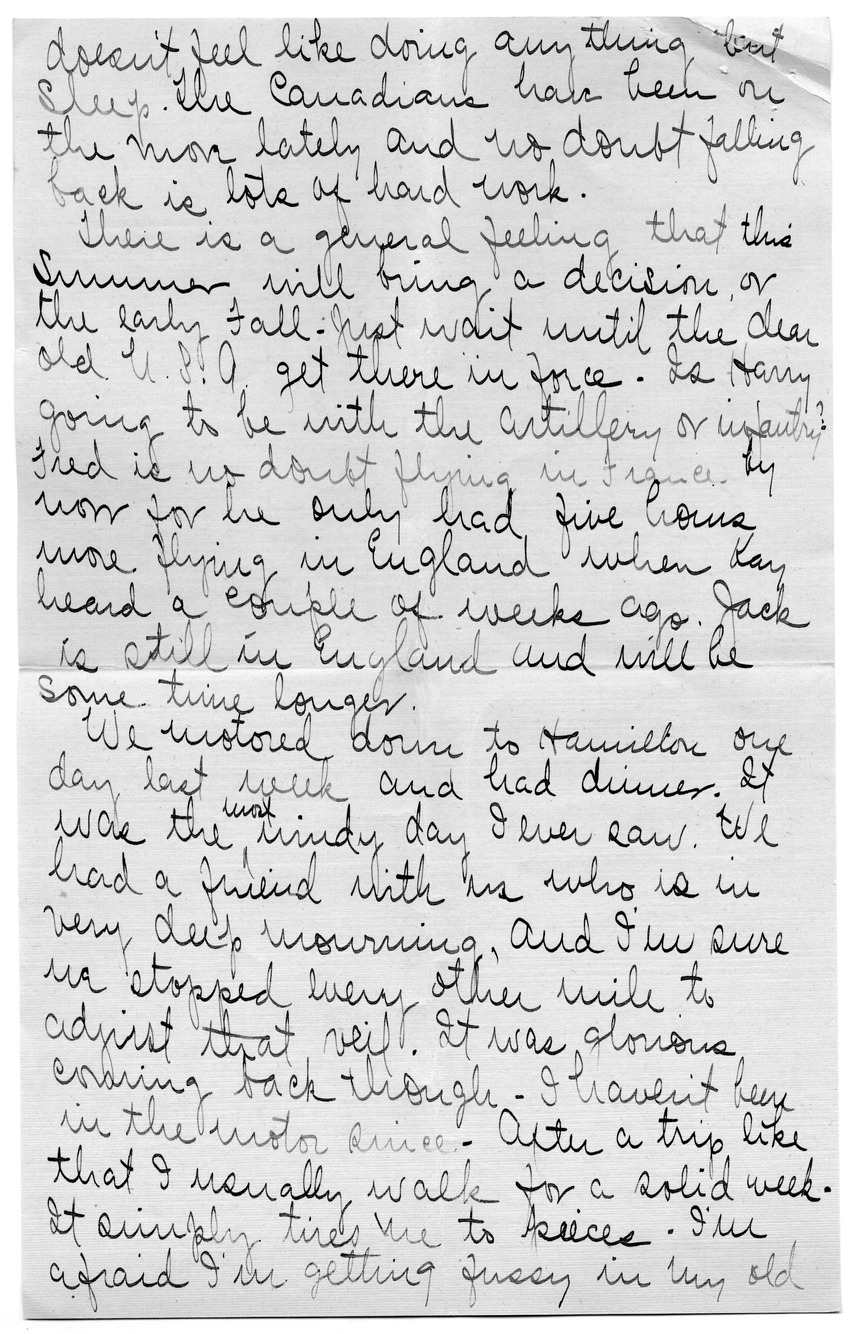 doesn't feel like doing anything but
Sleep. The Canadians have been on
the move lately and no doubt falling
back is lots of hard work.
There is a general feeling that this
Summer will bring a decision, or
the early Fall. Just wait until the dear
old U.S.A. get there in force. Is Harry
going to be with the artillery or infantry?
Fred is no doubt flying in France. by
now for he only had five hours
more flying in England when Kay
heard a couple of weeks ago. Jack
is still in England and will be
some time longer.
We motored down to Hamilton one
day last week and had dinner. It
was the most windy day I ever saw. We
had a friend with us who is in
very deep mourning, and I'm sure
we stopped every other mile to
adjust that veil. It was glorious
coming back though - I haven't been
in the motor since - After a trip like
that I usually walk for a solid week.
It simply tires me to pieces. I'm
afraid I'm getting fussy in my old